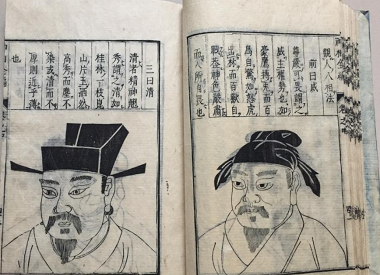 觀人八相法
前曰威
尊嚴可畏謂之
威主權勢也如
豪鷹搏兔而百
鳥自驚如怒虎
出林而百獸自
戰蓋神色嚴肅
而人所自畏也
三曰清
清者精神翹
秀謂之清如
桂林一枝崑
山片玉灑然
高秀而塵不
染或清而不
厚則近乎薄
也